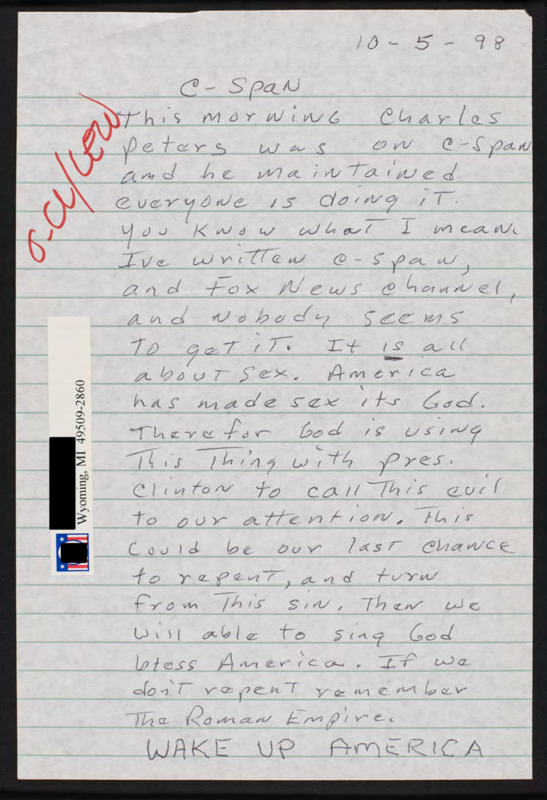 10-5-98
C-Span
This morning Charles
Peters was on C-Span
and he maintained
everyone is doing it.
You know what I mean.
Ive written C-Span,
and Fox News channel,
and nobody seems
to get it. It is all
about sex. America
has made sex its God.
Therefor God is using
This Thing with pres.
Clinton to call This evil
to our attention. This
Could be our last chance
to repent, and turn
from This sin. Then we
will able to sing God
bless America. If we
don't repent remember
The Roman Empire.
WAKE UP AMERICA
Wyoming, MI 49509-2860